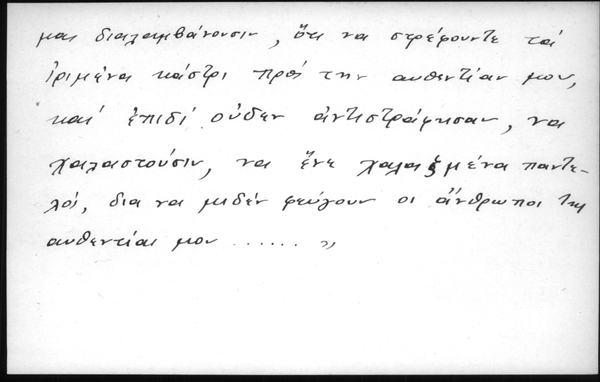 μας διαλαμβάνουσιν, ὅτι να στρέφουντε τα
ὁριμένα κάστρι προς την αυθεντίαν μου,
και ἐπιδί οὐδεν ἀντιστράφησαν, να
χαλαστούσιν, να ἔνε χαλαξμένα παντε-
λός, δια να μιδέν φεύγουν οι ἄνθρωποι της
αυθεντίας μου ...... "